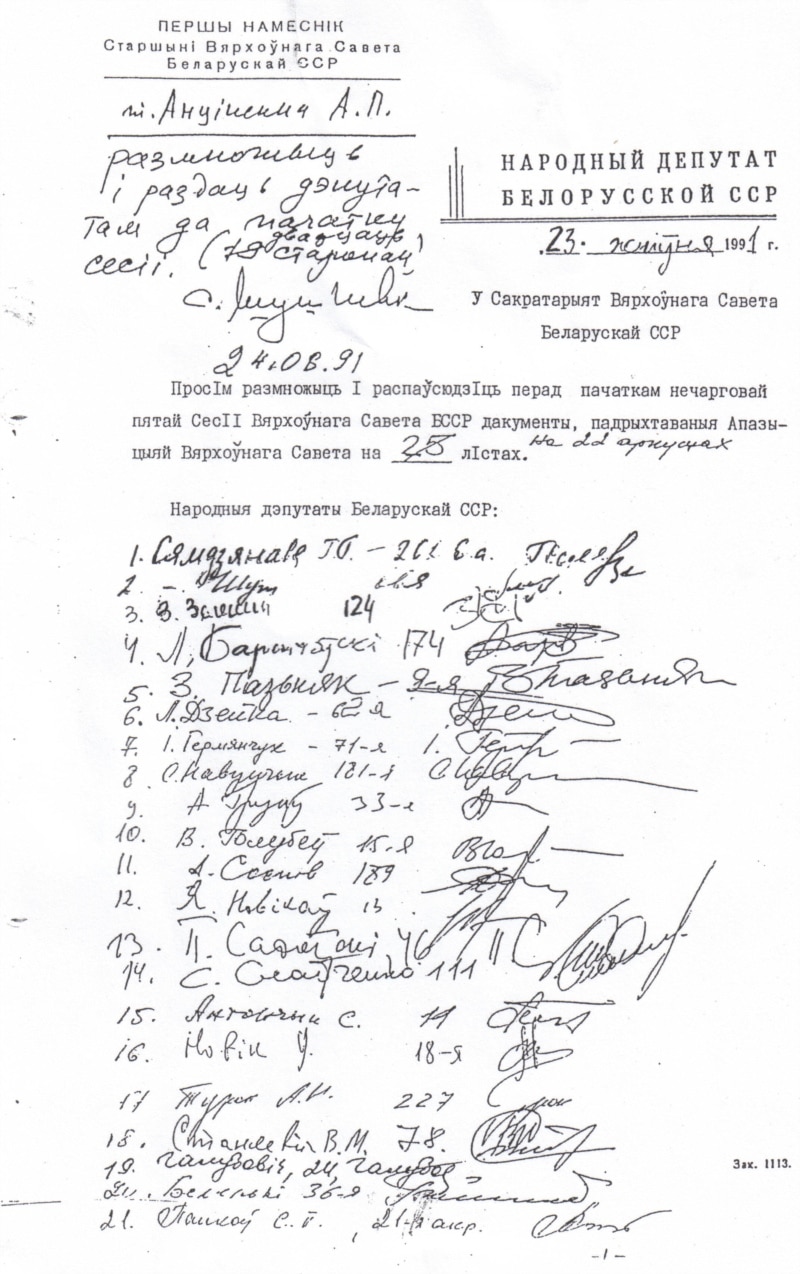 ПЕРШЫ НАМЕСНІК
Старшыні Вярхоўнага Савета
Беларускай ССР
т. Анціпенка А.П.
размножыць
і раздаць дэпута-
там да пачатку
сесіі. (
дваццаць
старонак)
С. Шушкевіч
24.08.91
НАРОДНЫЙ ДЕПУТАТ
БЕЛОРУССКОЙ ССР
23. жніўня 1991 г.
У Сакратарыят Вярхоўнага Савета
Беларускай ССР
ПросІм размножыць І распаўсюдзІць перад пачаткам нечарговай
пятай СесІІ Вярхоўнага Савета БССР дакументы, падрыхтаваныя Апазы-
цыяй Вярхоўнага Савета на лІстах. На 22 аркушах
Народныя дэпутаты Беларускай ССР:
1. Сямдзянава Г.Г. - 261 в.а.
2. Шут
3. З. 124
4. Л. Баршчэўскі 174
5. З. Пазьняк - 9-я
6. Л. Дзейка - 62-я
7. І. Германчук - 71-я
8. С. Навумчык 181-я
9. А 33-я
10. В. Голубеў 15-я
11. 189
12. Я. Новікаў 13
13. П. Садоўскі 46
14. С. Слабченко 111
15. Антончык С.
16. Новік У. 18-я
17 Турок А.И. 227
18. Станкевіч В.М. 78.
19. Галубовіч, 24,
20. 36-я
21. Папкоў С.П., 21-я акр.
Зак. 1113.
-1-